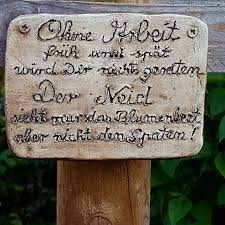 Ohne Arbeit
früh und spät
wird Dir nichts geraten
Der Neid
sieht nur das Blumenbeet
aber nicht den Spaten!